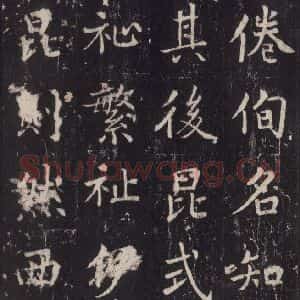 倦佝名知
其後昆式
祉繁祉伊
昆則然西
Shufawang.Cn